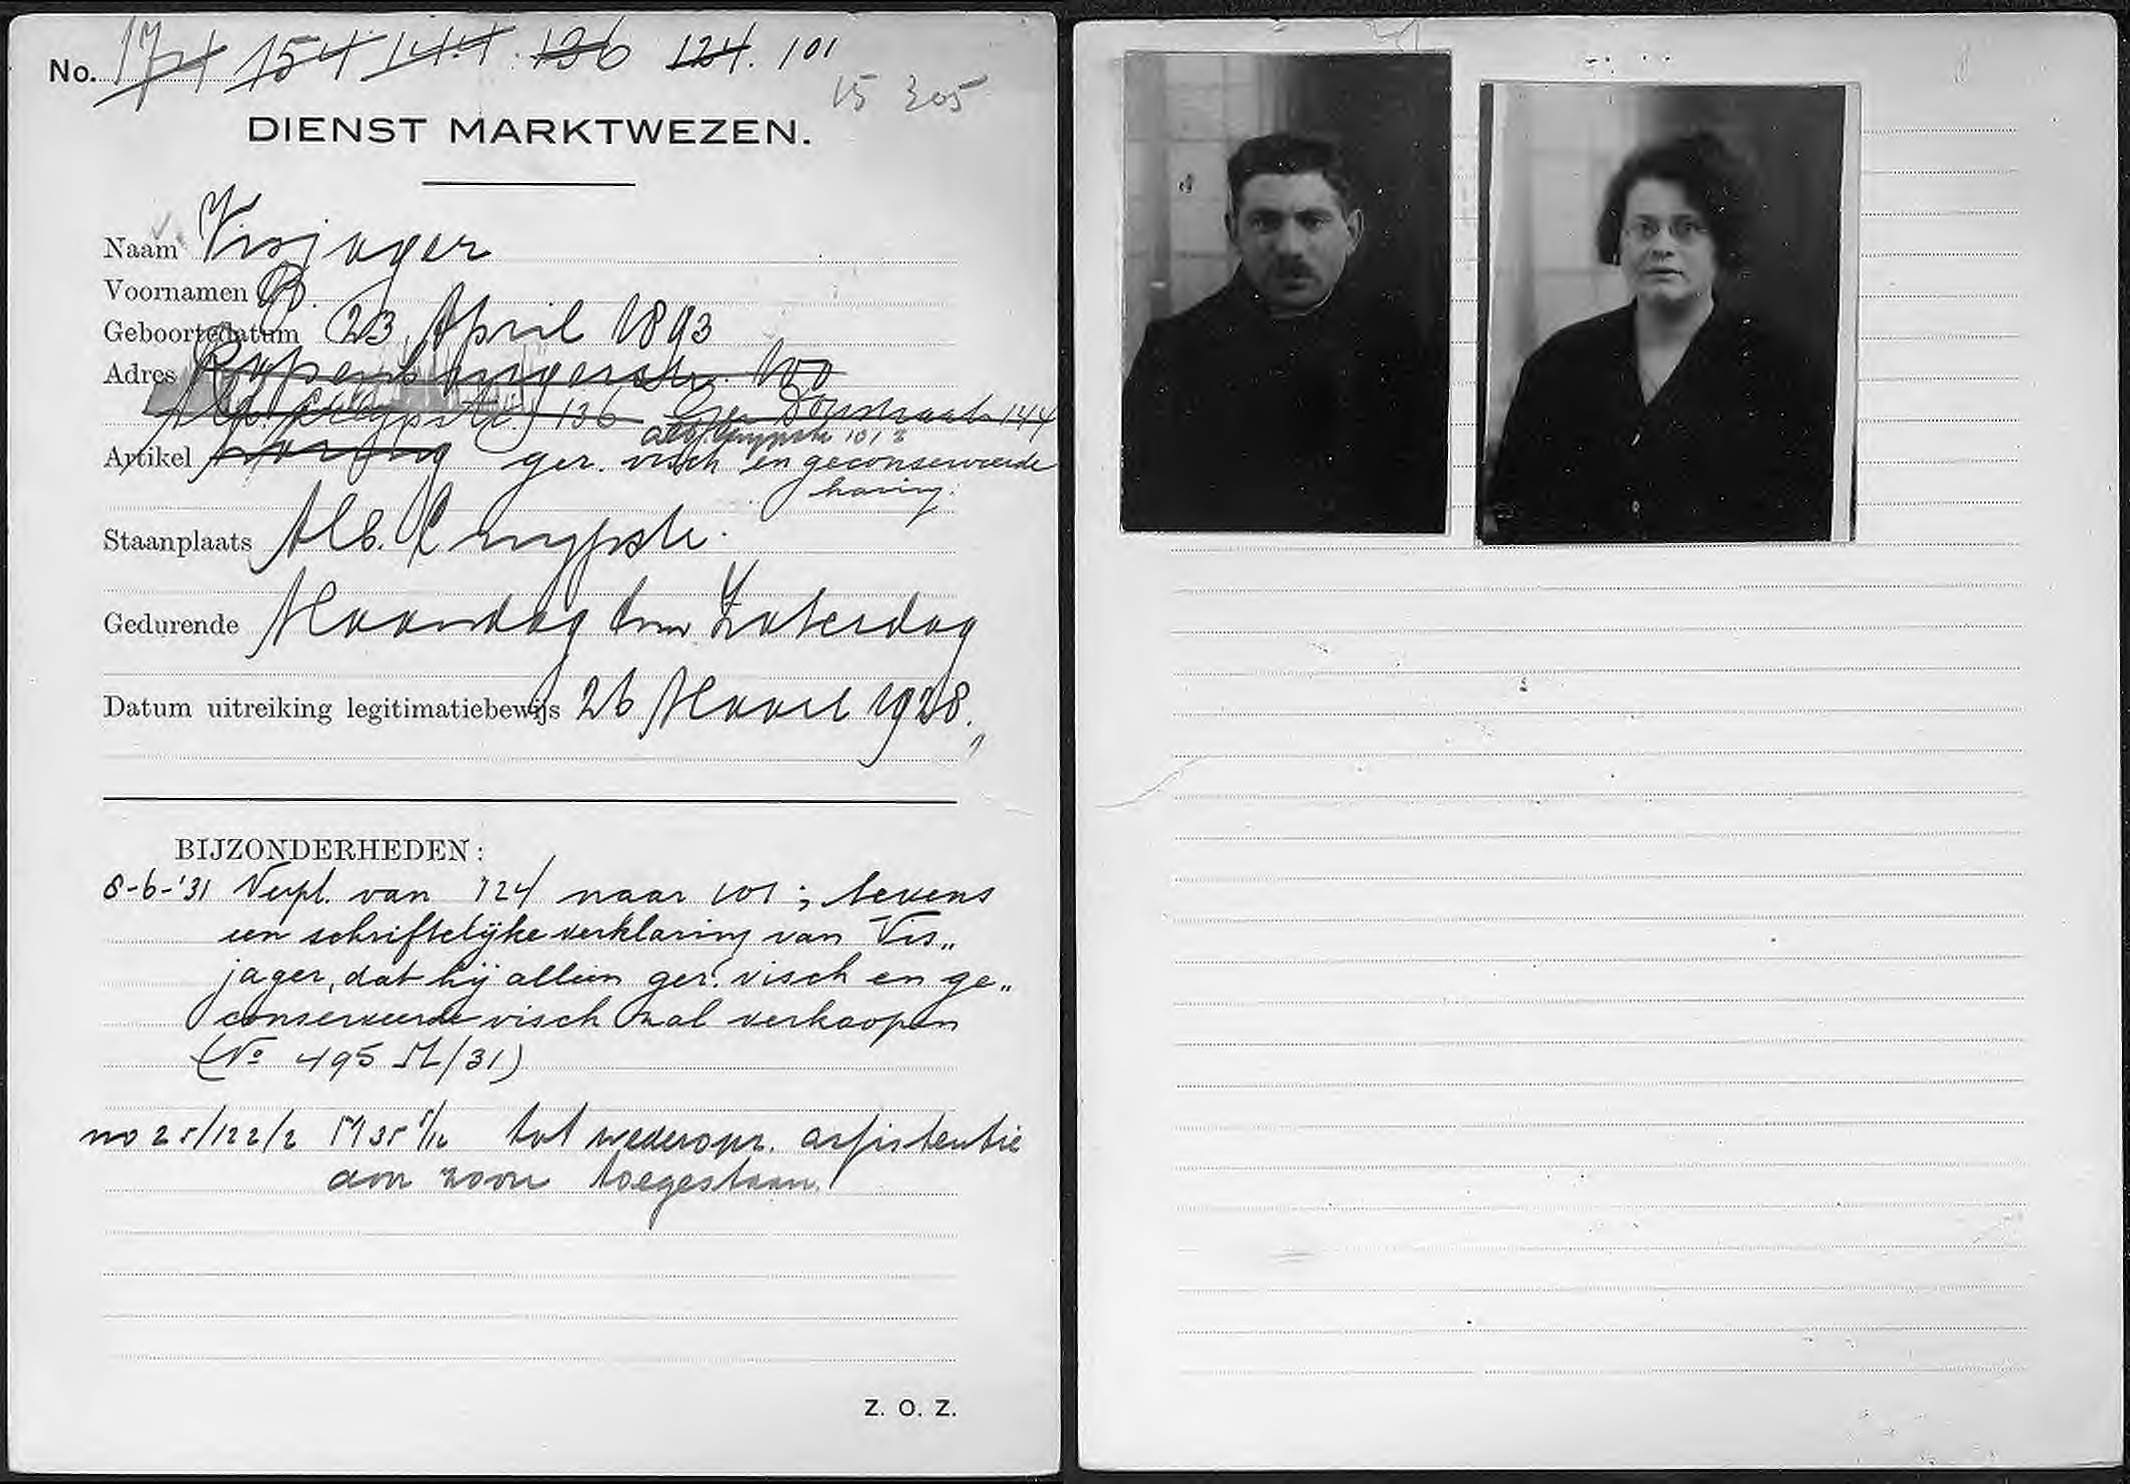 No. 174 154 144 136 124. 101
15 305
DIENST MARKTWEZEN.
Naam Visjager
Voornamen B.
Geboortedatum 23 April 1893
Adres Rijpenhofstr. 100
Alb. Cuypstr. 136 Ger Doustraat 144
Alb. Cuypstr 101
Artikel haring ger. visch en geconserveerde
haring.
Staanplaats Alb. Cuypstr.
Gedurende Maandag t/m Zaterdag
Datum uitreiking legitimatiebewijs 26 Maart 1928.
BIJZONDERHEDEN:
8-6-'31 Verpl. van 124 naar 101; tevens
een schriftelijke verklaring van Vis„
jager, dat hij alleen ger. visch en ge„
conserveerde visch zal verkoopen
(No 495 M/31)
no 25/122/2 M 35 tot wederopz. assistentie
aan zoon toegestaan.
Z. O. Z.